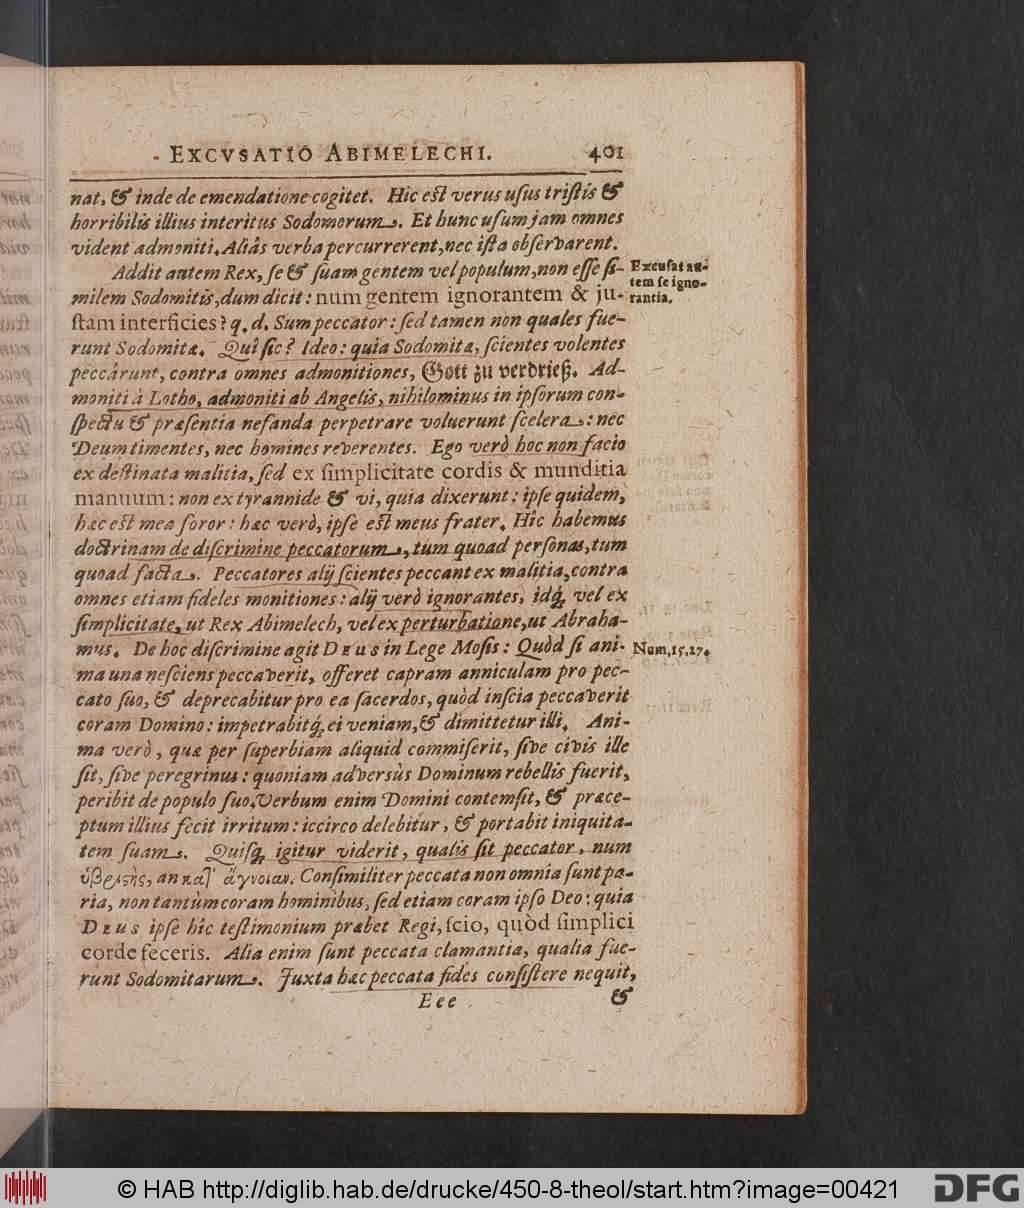 EXCVSATIO ABIMELECHI. 401
nat, & inde de emendatione cogitet. Hic est verus usus tristis &
horribilis illius interitus Sodomorum. Et hunc usum jam omnes
vident admoniti. Aliâs verba percurrerent, nec ista observarent.
Addit autem Rex, se & suam gentem vel populum, non esse si-
milem Sodomitis, dum dicit: num gentem ignorantem & ju-
stam interficies? q. d. Sum peccator: sed tamen non quales fue-
runt Sodomitæ. Quî sic? Ideo: quia Sodomitæ, scientes volentes
peccârunt, contra omnes admonitiones, Gott zu verdrieß. Ad-
moniti à Lotho, admoniti ab Angelis, nihilominus in ipsorum con-
spectu & præsentia nefanda perpetrare voluerunt scelera: nec
Deum timentes, nec homines reverentes. Ego verò hoc non facio
ex destinata malitia, sed ex simplicitate cordis & munditia
manuum: non ex tyrannide & vi, quia dixerunt: ipse quidem,
hæc est mea soror: hæc verò, ipse est meus frater. Hîc habemus
doctrinam de discrimine peccatorum, tum quoad personas, tum
quoad facta. Peccatores alij scientes peccant ex malitia, contra
omnes etiam fideles monitiones: alij verò ignorantes, idq́; vel ex
simplicitate, ut Rex Abimelech, vel ex perturbatione, ut Abraha-
mus. De hoc discrimine agit DEUS in Lege Mosis: Quòd si ani-
ma una nesciens peccaverit, offeret capram anniculam pro pec-
cato suo, & deprecabitur pro ea sacerdos, quòd inscia peccaverit
coram Domino: impetrabitq́; ei veniam, & dimittetur illi. Ani-
ma verò, quæ per superbiam aliquid commiserit, sive civis ille
sit, sive peregrinus: quoniam adversùs Dominum rebellis fuerit,
peribit de populo suo. Verbum enim Domini contemsit, & præce-
ptum illius fecit irritum: iccirco delebitur, & portabit iniquita-
tem suam. Quisq; igitur viderit, qualis sit peccator, num
ὑβριστὴς, an κατ' ἄγνοιαν. Consimiliter peccata non omnia sunt pa-
ria, non tantùm coram hominibus, sed etiam coram ipso Deo: quia
DEUS ipse hîc testimonium præbet Regi, scio, quòd simplici
corde feceris. Alia enim sunt peccata clamantia, qualia fue-
runt Sodomitarum. Juxta hæc peccata fides consistere nequit,
Eee &
Excusat au-
tem se igno-
rantia.
Num. 15. 27.
© HAB http://diglib.hab.de/drucke/450-8-theol/start.htm?image=00421
DFG